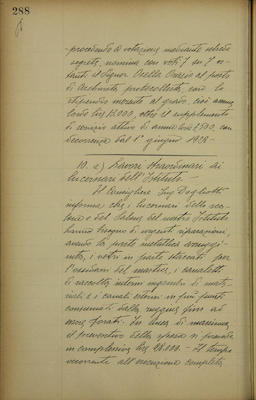 288
procedendo a votazione mediante schede
segrete, nomina con voti 7 su 7 vo-
tanti, il Signor Orella Orazio al posto
di Archivista protocollista, con lo
stipendio inerente al grado, cioè annue
lorde Lire 13.000, oltre il supplemento
di servizio attivo di annue lorde 1500, con
decorrenza dal 1° giugno 1928.
10. a) Lavori straordinari ai
lucernari dell'Istituto.
Il Consigliere Ing.
informa che i lucernari dello sca-
lone e del Salone del nostro Istituto
hanno bisogno di urgenti riparazioni,
avendo la parte metallica arruggi-
nita, i vetri in parte staccati per
l'essiccarsi del mastice, i canaletti
di raccolta interni ingombri di mate-
riali e i canali esterni in più punti
consumati dalla ruggine fino ad
essere forati. In linea di massima
il preventivo della spesa si presenta
in complessive Lire 28.000. Il tempo
occorrente all'esecuzione completa